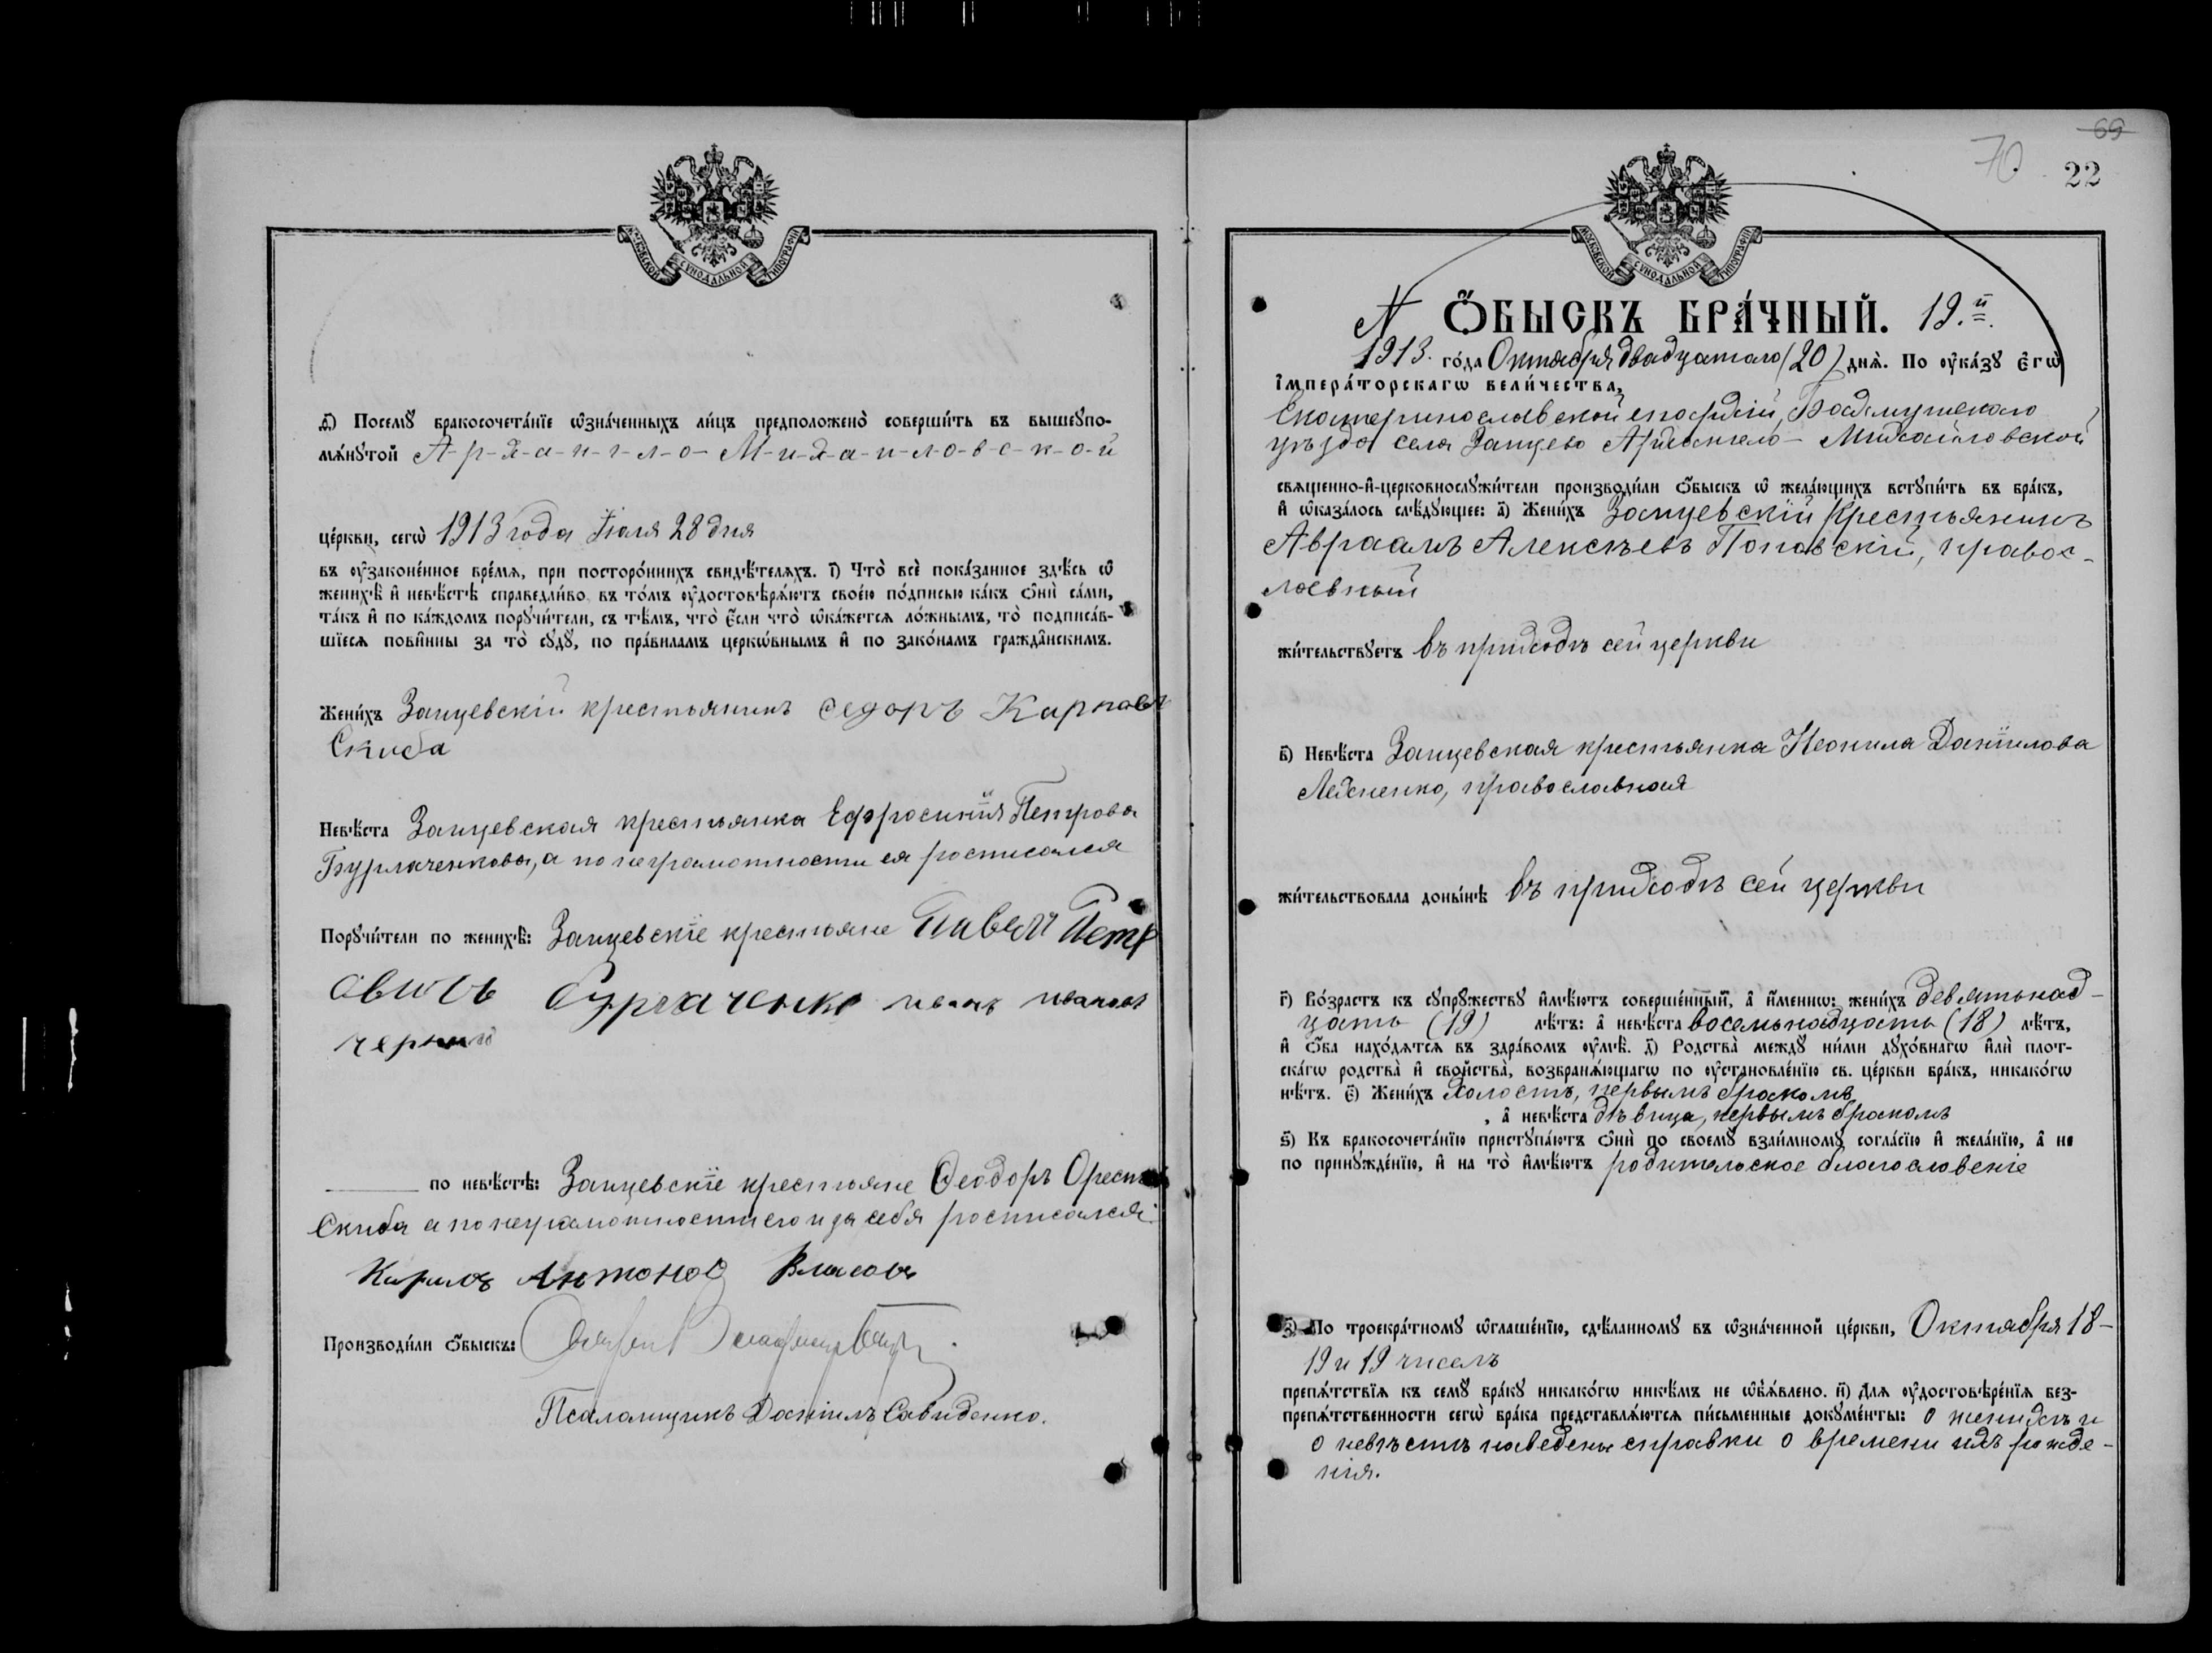 МОСКОВСКОЙ СѴНОДАЛЬНОЙ ТИПОГРАФІИ
Посемꙋ̀ бракосочета́нїе ѡ҆зна́ченныхъ ли́цъ предположено̀ соверши́ть въ вышеꙋпо-
мѧ́нꙋтой А-р-х-а-н-г-л-о- М-и-х-а-и-л-о-в-с-к-о-й
це́ркви, сегѡ̀ 1913 года Іюля 28 дня
въ ᲂу҆законе́нное вре́мѧ, при посторо́ннихъ свидѣ́телѧхъ. і҃) Что̀ всѐ пока́занное здѣ́сь ѡ҆
женихѣ̀ и҆ невѣ́стѣ справедли́во въ то́мъ ᲂу҆достовѣрѧ́ютъ свое́ю по́дписью ка́къ ѻ҆нѝ са́ми,
та́къ и҆ по ка́ждомъ порꙋчи́тели, съ тѣ́мъ, что̀ є҆́сли что̀ ѡ҆ка́жетсѧ ло́жнымъ, то̀ подписа́в-
шїесѧ пови́нны за то̀ сꙋдꙋ̀, по пра́виламъ церкѡ́внымъ и҆ по зако́намъ гражда́нскимъ.
Жени́хъ Зайцевскій крестьянинъ Седоръ Карповъ
Скиба
Невѣ́ста Зайцевская крестьянка Ефросинія Петрова
Бурлаченкова, а по неграмотности ея росписался
Порꙋчи́тели по женихѣ̀: Зайцевскіе крестьяне Павелъ Петр
овичь Бурлаченко иванъ ивановъ
черный
по невѣ́стѣ: Зайцевскіе крестьяне Ѳеодоръ Орест
Скиба а по неграмотности его и за себя росписался
Кирилъ Антонов Власовъ
Производи́ли ѻ҆́быскъ:
Псаломщикъ Даніилъ Савиденко.
69
70
22
МОСКОВСКОЙ СѴНОДАЛЬНОЙ ТИПОГРАФІИ
N Ѻ҆́БЫСКЪ БРА́ЧНЫЙ. 19.й
1913. го́да Октября двадцатаго (20) днѧ̀. По ᲂу҆ка́зꙋ Є҆гѡ̀
і҆мпера́торскагѡ вели́чества,
Екатеринославской епархіи, Бахмутскаго
уѣзда села Зайцево Архангело- Михайловской
свѧще́нно-и҆-церковнослꙋжи́тели производи́ли ѻ҆́быскъ ѡ҆ жела́ющихъ встꙋпи́ть въ бра́къ,
и҆ ѡ҆каза́лось слѣ́дꙋющее: а҃) Жени́хъ Зайцевскій крестьянинъ
Авраамъ Алексѣевъ Поповскій, правос-
лавный
жи́тельствꙋетъ въ приходѣ сей церкви
в҃) Невѣ́ста Зайцевская крестьянка Неонила Даніилова
православная
жи́тельствовала доны́нѣ въ приходѣ сей церкви
г҃) Во́зрастъ къ сꙋпрꙋ́жествꙋ и҆мѣ́ютъ соверше́нный, а҆ и҆́меннѡ: жени́хъ девятьнад-
цать (19) лѣ́тъ: а҆ невѣ́ста восемьнадцать (18) лѣ́тъ,
и҆ ѻ҆́ба нахо́дѧтсѧ въ здра́вомъ ᲂу҆мѣ̀. д҃) Родства̀ междꙋ̀ ни́ми дꙋхо́внагѡ и҆лѝ плот-
ска́гѡ родства̀ и҆ сво́йства̀, возбранѧ́ющагѡ по ᲂу҆становле́нїю св. це́ркви бра́къ, никако́гѡ
нѣ́тъ. є҃) Жени́хъ холостъ, первымъ бракомъ
, а҆ невѣ́ста дѣвица, первымъ бракомъ
ѕ҃) Къ бракосочета́нїю пристꙋпа́ютъ ѻ҆нѝ по своемꙋ̀ взаи́мномꙋ согла́сїю и҆ жела́нїю, а҆ не
по принꙋжде́нїю, и҆ на то̀ и҆мѣ́ютъ родительское благословеніе
По троекра́тномꙋ ѡ҆глаше́нїю, сдѣ́ланномꙋ въ ѡ҆зна́ченной це́ркви, Октября 18-
19 и 19 чиселъ
препѧ́тствїѧ къ семꙋ̀ бра́кꙋ никако́гѡ никѣ́мъ не ѡ҆б̾ѧ́влено. и҃) Длѧ ᲂу҆достовѣре́нїѧ без-
препѧ́тственности сегѡ̀ бра́ка представлѧ́ютсѧ пи́сьменные докꙋме́нты: о женихѣ и
о невѣстѣ наведены справки о времени ихъ рожде-
нія.